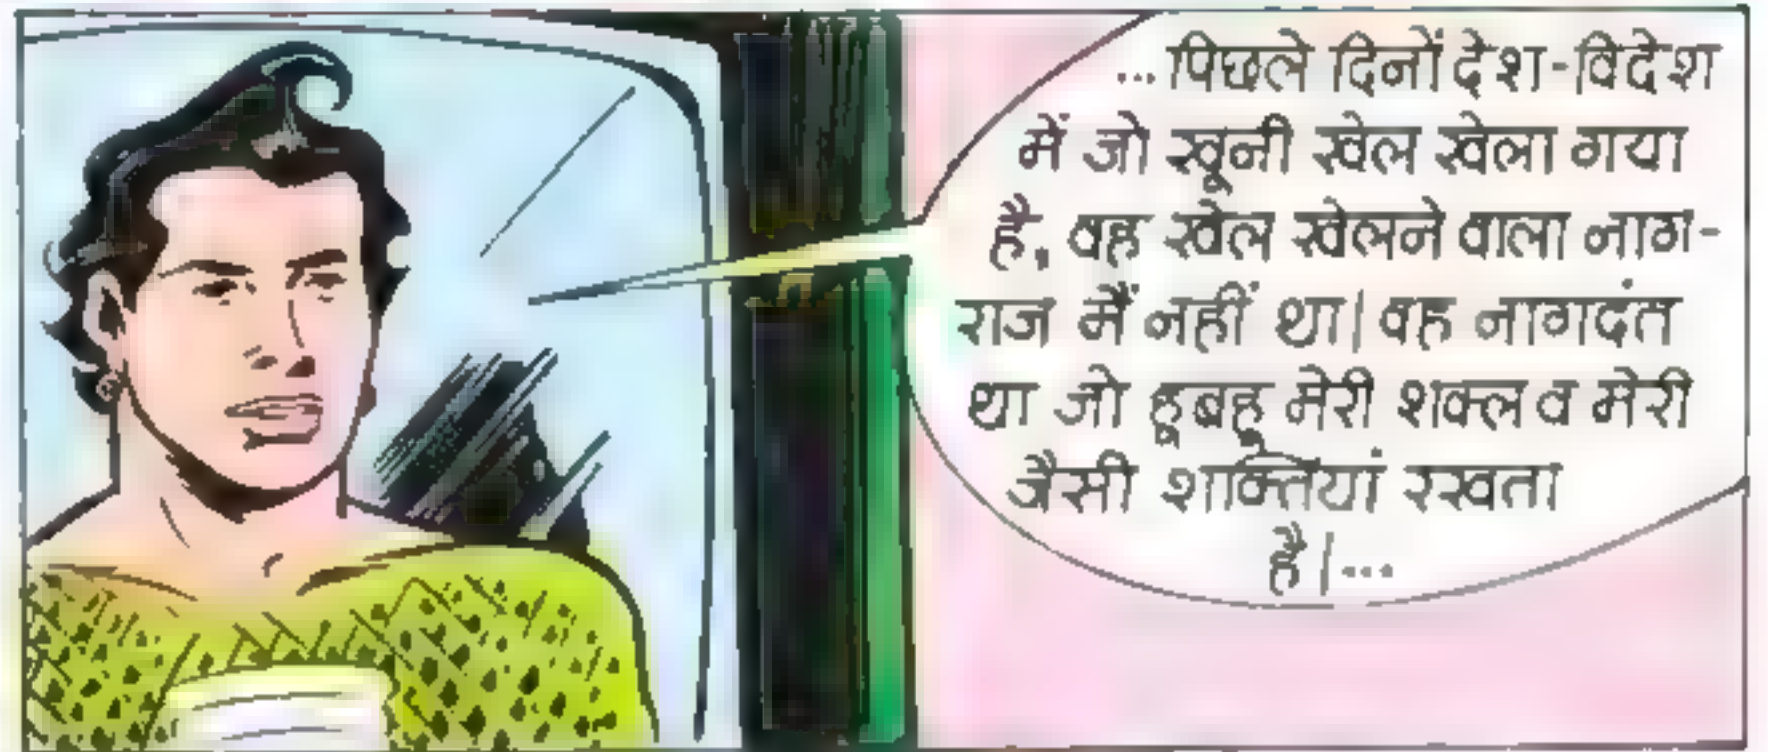 ...पिछले दिनों देश-विदेश
में जो खूनी खेल खेला गया
है, वह खेल खेलने वाला नाग-
राज मैं नहीं था| वह नागदंत
था जो हूबहू मेरी शक्ल व मेरी
जैसी शक्तियां रखता
है|...